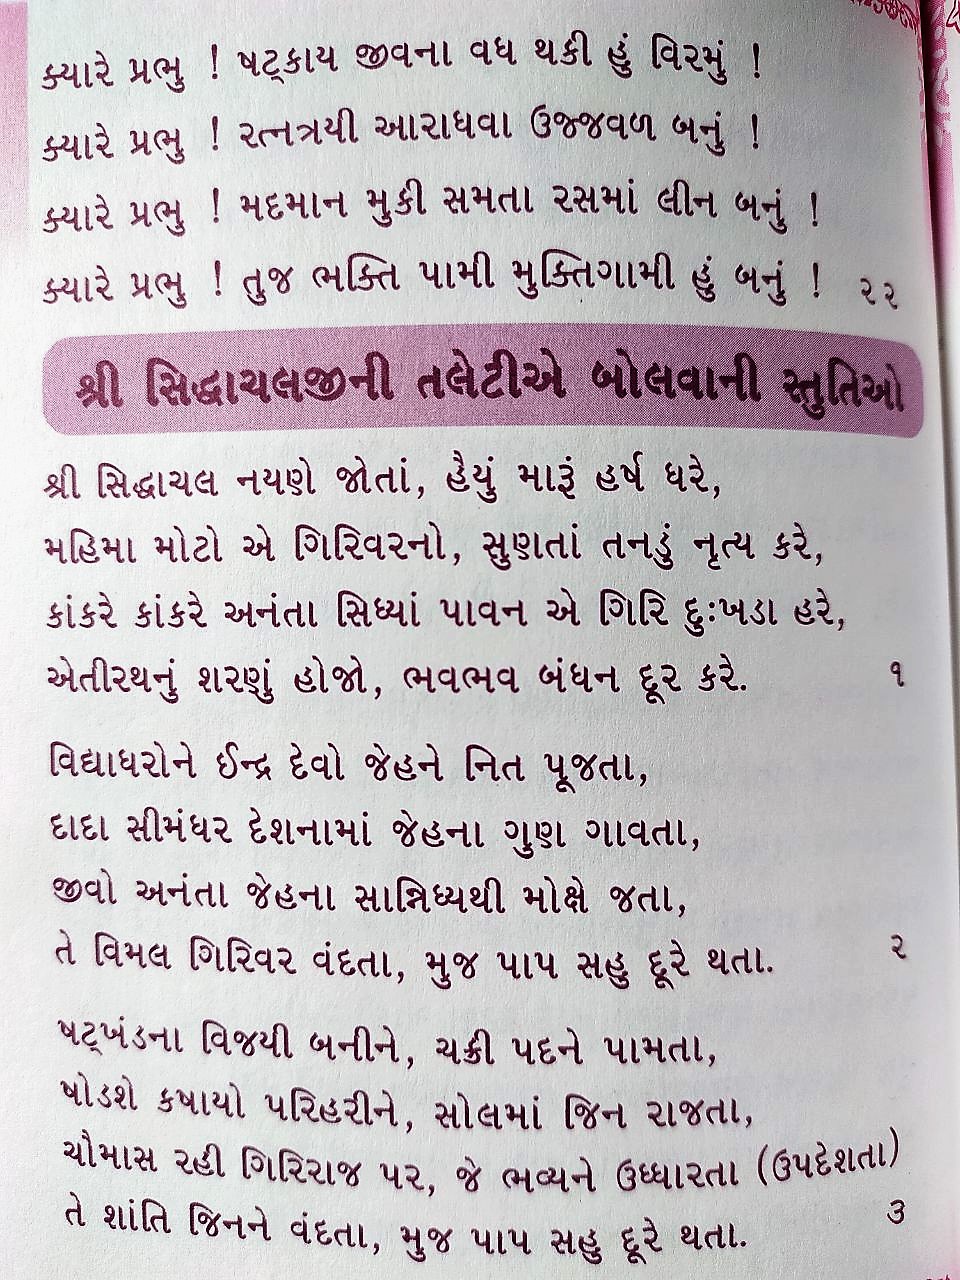 ક્યારે પ્રભુ ! ષટ્કાય જીવના વધ થકી હું વિરમું !
ક્યારે પ્રભુ ! રત્નત્રયી આરાધવા ઉજ્જવળ બનું !
ક્યારે પ્રભુ ! મદમાન મુકી સમતા રસમાં લીન બનું !
ક્યારે પ્રભુ ! તુજ ભક્તિ પામી મુક્તિગામી હું બનું ! ૨૨
શ્રી સિદ્ધાચલજીની તલેટીએ બોલવાની સ્તુતિઓ
શ્રી સિદ્ધાચલ નયણે જોતાં, હૈયું મારૂં હર્ષ ધરે,
મહિમા મોટો એ ગિરિવરનો, સુણતાં તનડું નૃત્ય કરે,
કાંકરે કાંકરે અનંતા સિધ્યાં પાવન એ ગિરિ દુઃખડા હરે,
એતીરથનું શરણું હોજો, ભવભવ બંધન દૂર કરે. ૧
વિદ્યાધરોને ઈન્દ્ર દેવો જેહને નિત પૂજતા,
દાદા સીમંધર દેશનામાં જેહના ગુણ ગાવતા,
જીવો અનંતા જેહના સાન્નિધ્યથી મોક્ષે જતા,
તે વિમલ ગિરિવર વંદતા, મુજ પાપ સહુ દૂરે થતા. ૨
ષટ્ખંડના વિજયી બનીને, ચક્રી પદને પામતા,
ષોડશે કષાયો પરિહરીને, સોલમાં જિન રાજતા,
ચોમાસ રહી ગિરિરાજ પર, જે ભવ્યને ઉધ્ધારતા (ઉપદેશતા)
તે શાંતિ જિનને વંદતા, મુજ પાપ સહુ દૂરે થતા. ૩